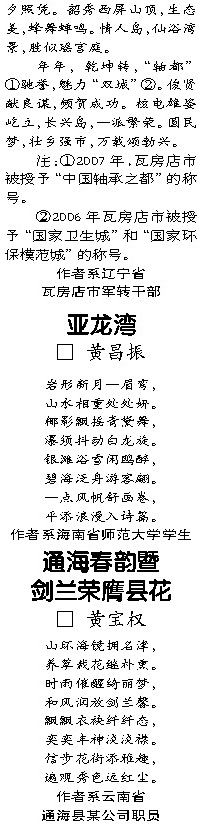 夕照凭。韶秀西屏山顶,生态
美,蜂舞蝉鸣。情人岛,仙浴湾
景,胜似瑶宫庭。
年年,乾坤转,“轴都”
①驰誉,魅力“双城”②。俊贤
献良谋,频贺成功。核电雄姿
屹立,长兴岛,一派繁荣。圆民
梦,壮乡强市,万载颂勃兴。
注:①2007年,瓦房店市
被授予“中国轴承之都”的称
号。
②2006年瓦房店市被授
予“国家卫生城”和“国家环
保模范城”的称号。
作者系辽宁省
瓦房店市军转干部
亚龙湾
□ 黄昌振
岩形新月一眉弯,
山水相重处处妍。
椰影飘摇青黛舞,
瀑须抖动白龙旋。
银滩浴雪闲鸥醉,
碧海泛舟游客翩。
一点风帆舒画卷,
平添浪漫入诗篇。
作者系海南省师范大学学生
通海春韵暨
剑兰荣膺县花
□ 黄宝权
山环海镜拥名津,
养草栽花继朴熏。
时雨催醒绮丽梦,
和风润放剑兰馨。
飘飘衣袂纤纤态,
奕奕丰神淡淡襟。
信步花街添雅趣,
遍观秀色远红尘。
作者系云南省
通海县某公司职员